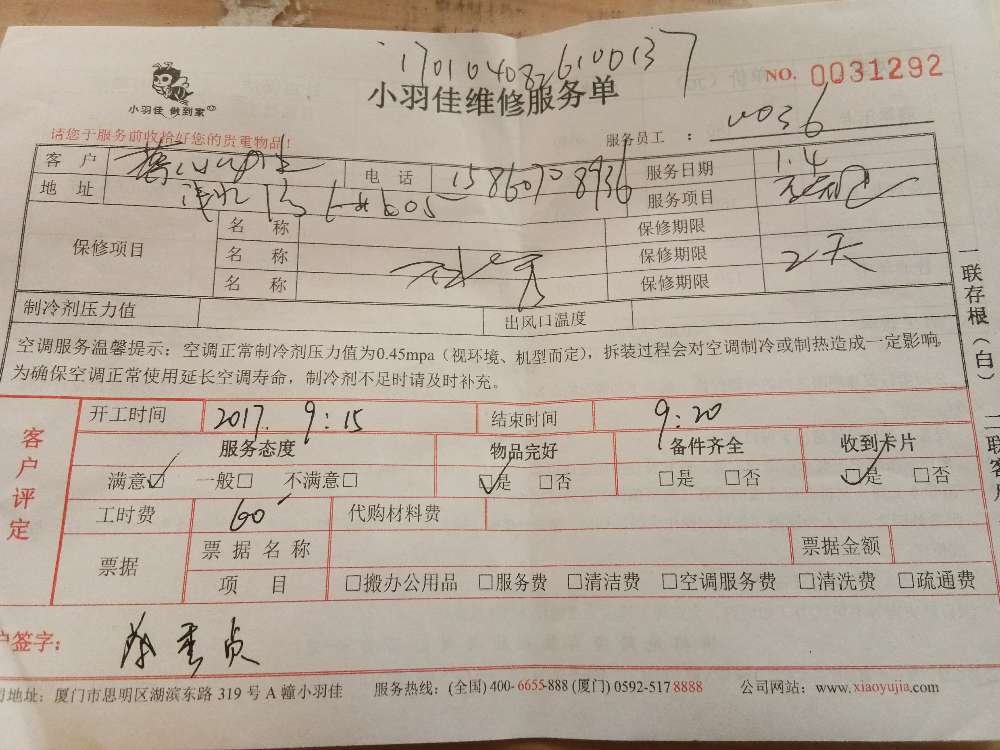 1701040826100137
小羽佳 做到家
小羽佳维修服务单
NO. 0031292
请您于服务前收拾好您的贵重物品!
服务员工：
客户 电话 服务日期 1.4
地址 6# 605 服务项目
保修项目 名称 保修期限
名称 保修期限 2天
名称 保修期限
制冷剂压力值 出风口温度
空调服务温馨提示：空调正常制冷剂压力值为0.45mpa（视环境、机型而定），拆装过程会对空调制冷或制热造成一定影响，
为确保空调正常使用延长空调寿命，制冷剂不足时请及时补充。
一联存根（白）
二联客
客户评定
开工时间 2017. 9:15 结束时间 9:20
服务态度 物品完好 备件齐全 收到卡片
满意☑ 一般□ 不满意□ ☑是 □否 □是 □否 ☑是 □否
工时费 60 代购材料费
票据 票据名称 票据金额
项目 □搬办公用品 □服务费 □清洁费 □空调服务费 □清洗费 □疏通费
户签字：
司地址：厦门市思明区湖滨东路 319 号 A 幢小羽佳 服务热线：(全国) 400-6655-888 (厦门) 0592-517 8888 公司网站：www.xiaoyujia.com